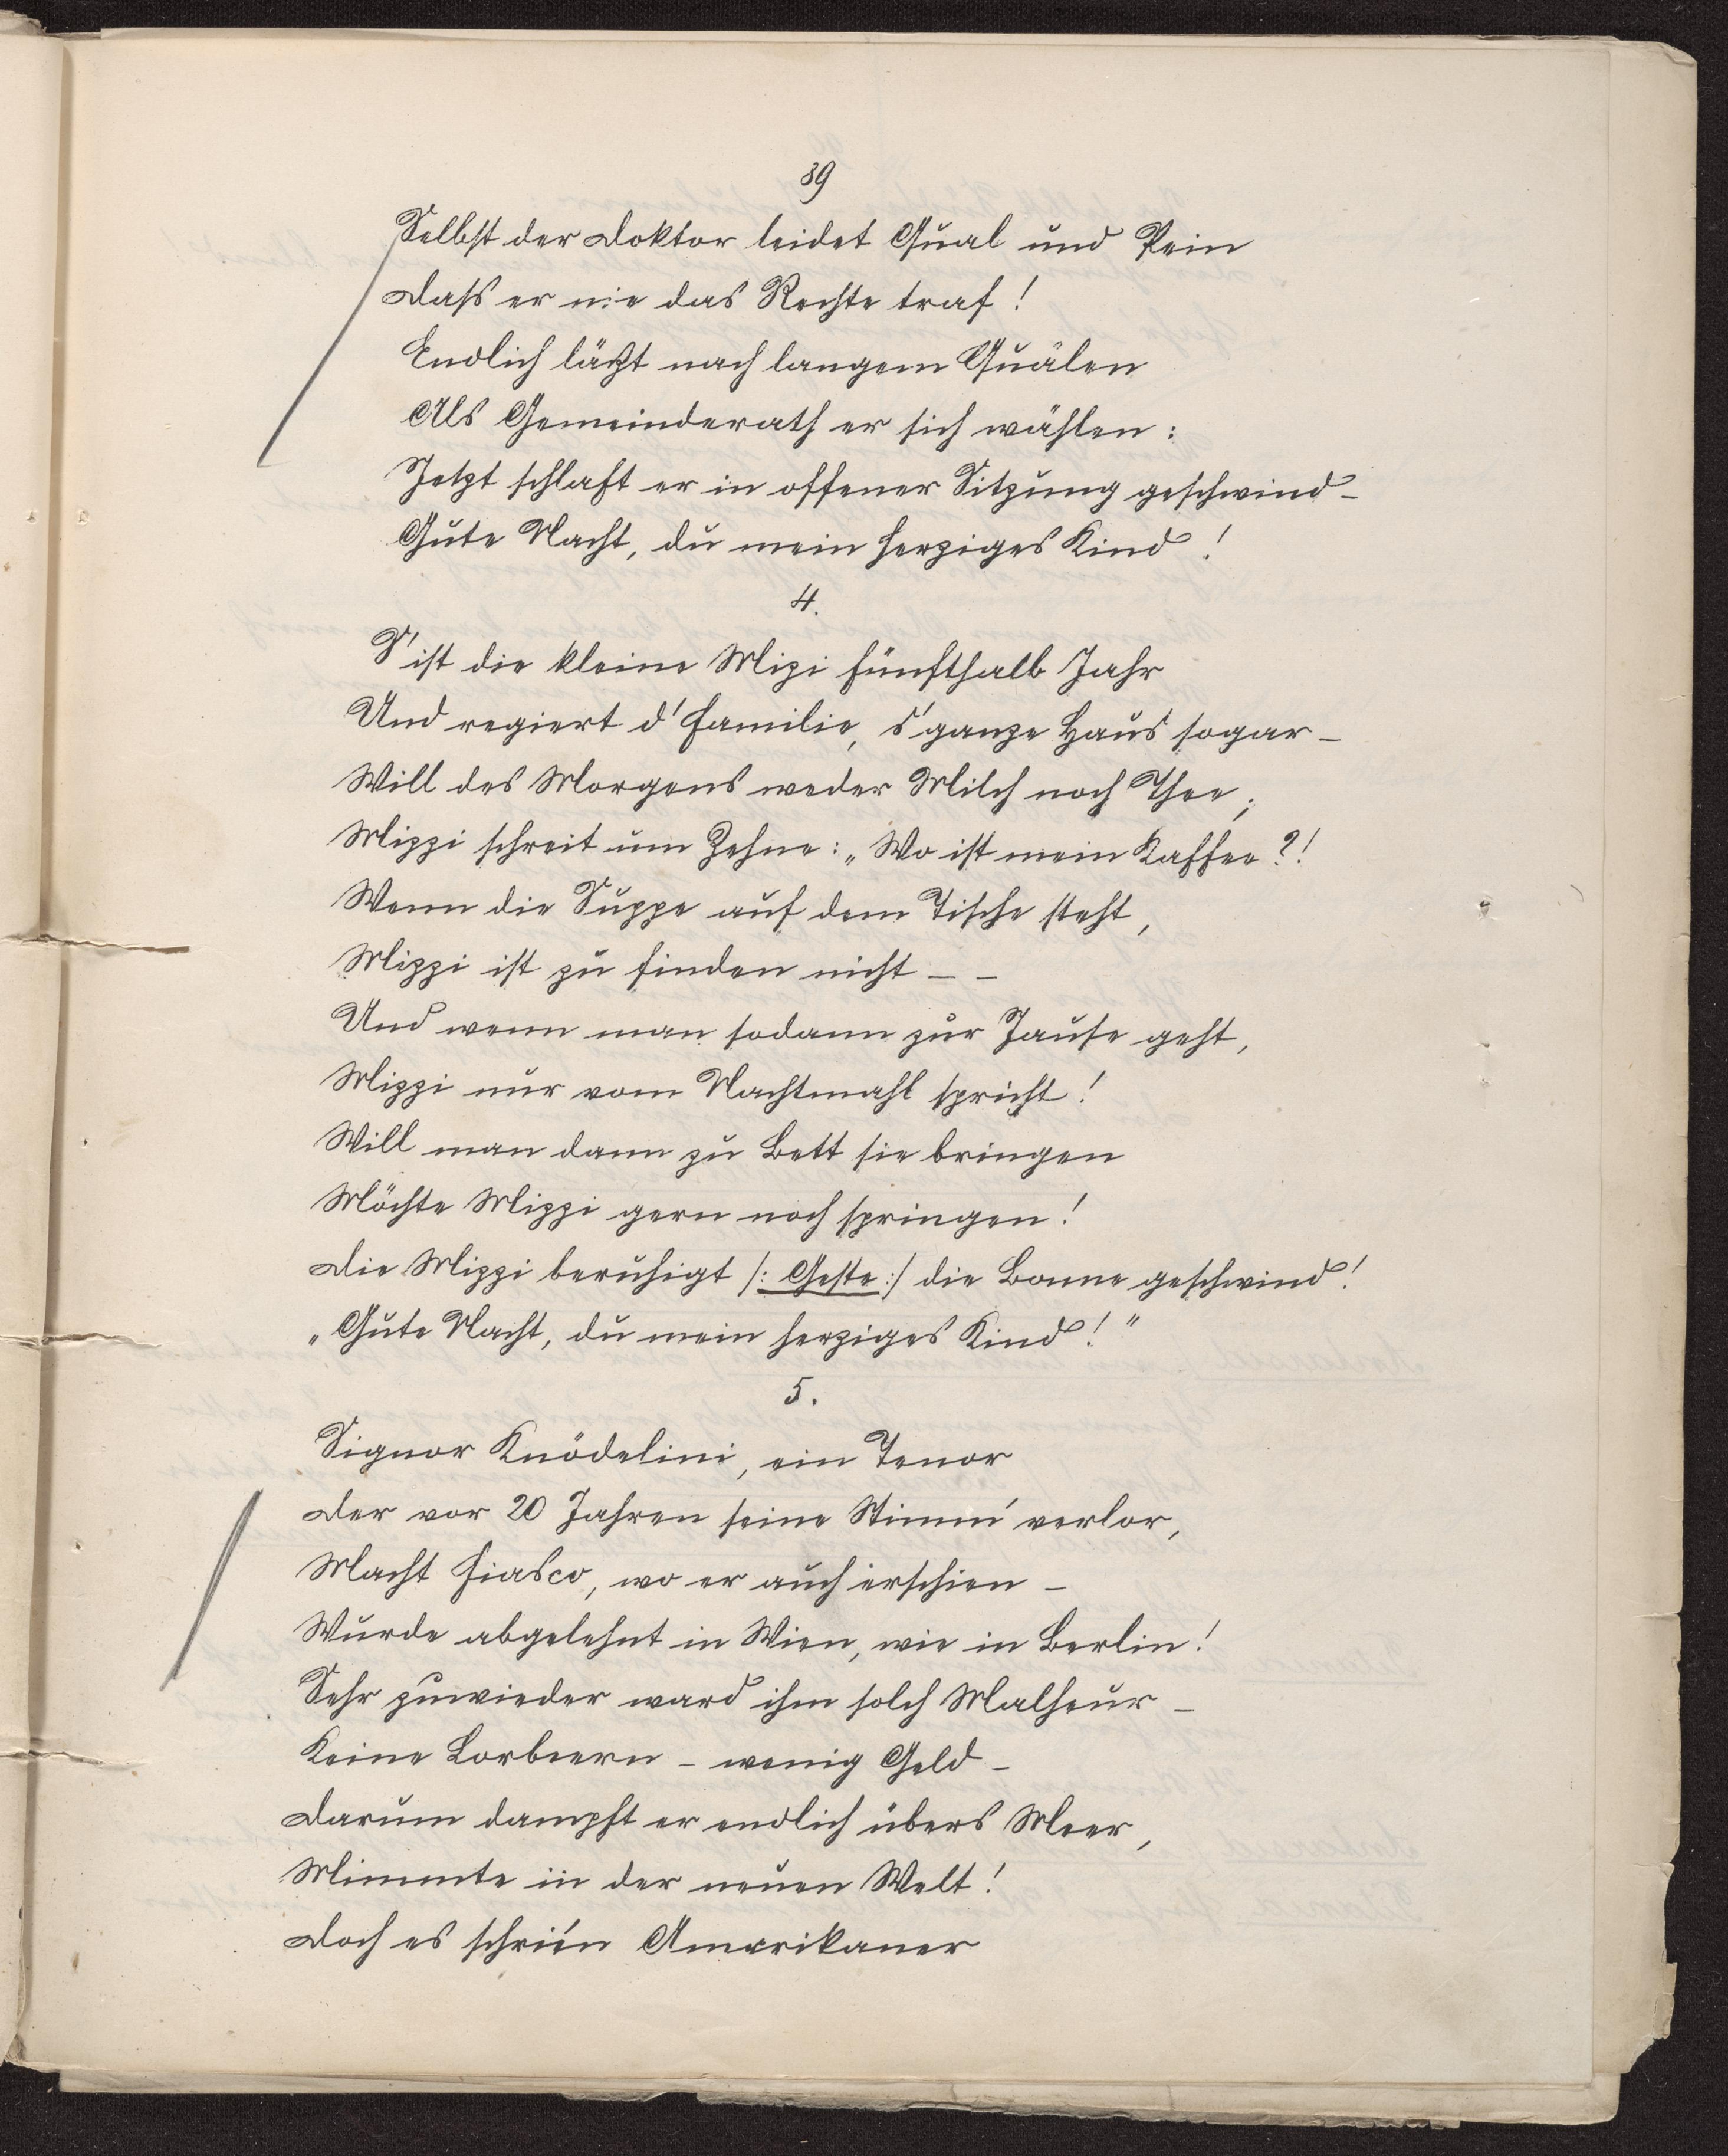 39
Selbst der Doktor leidet Qual und Pein
Dass er nie das Rechte traf!
Endlich läßt nach langem Quälen
Als Gemeinderath er sich wählen:
Jetzt schlaft er in offener Sitzung geschwind –
Gute Nacht, du mein herziges Kind!
4.
S'ist die kleine Mizi fünfthalb Jahr
Und regiert d'Familie, s'ganze Haus sogar –
Will des Morgens weder Milch noch Thee;
Mizzi schreit um Zehne: „Wo ist mein Kaffee?!
Wenn die Suppe auf dem Tische steht,
Mizzi ist zu finden nicht – –
Und wenn man sodann zur Jause geht,
Mizzi nur vom Nachtmahl spricht!
Will man dann zu Bett sie bringen
Möchte Mizzi gern noch springen!
Die Mizzi beruhigt /: Geste :/ die Bonne geschwind!
„Gute Nacht, du mein herziges Kind!"
5.
Signor Knödelini, ein Tenor
Der vor 20 Jahren seine Stimm' verlor,
Macht Fiasco, wo er auch erschien –
Wurde abgelehnt in Wien, wie in Berlin!
Sehr zuwieder ward ihm solch Malheur –
Keine Lorbeern – wenig Geld –
Darum dampft er endlich übers Meer,
Mimmte in der neuen Welt!
Doch es schrie'n Amerikaner